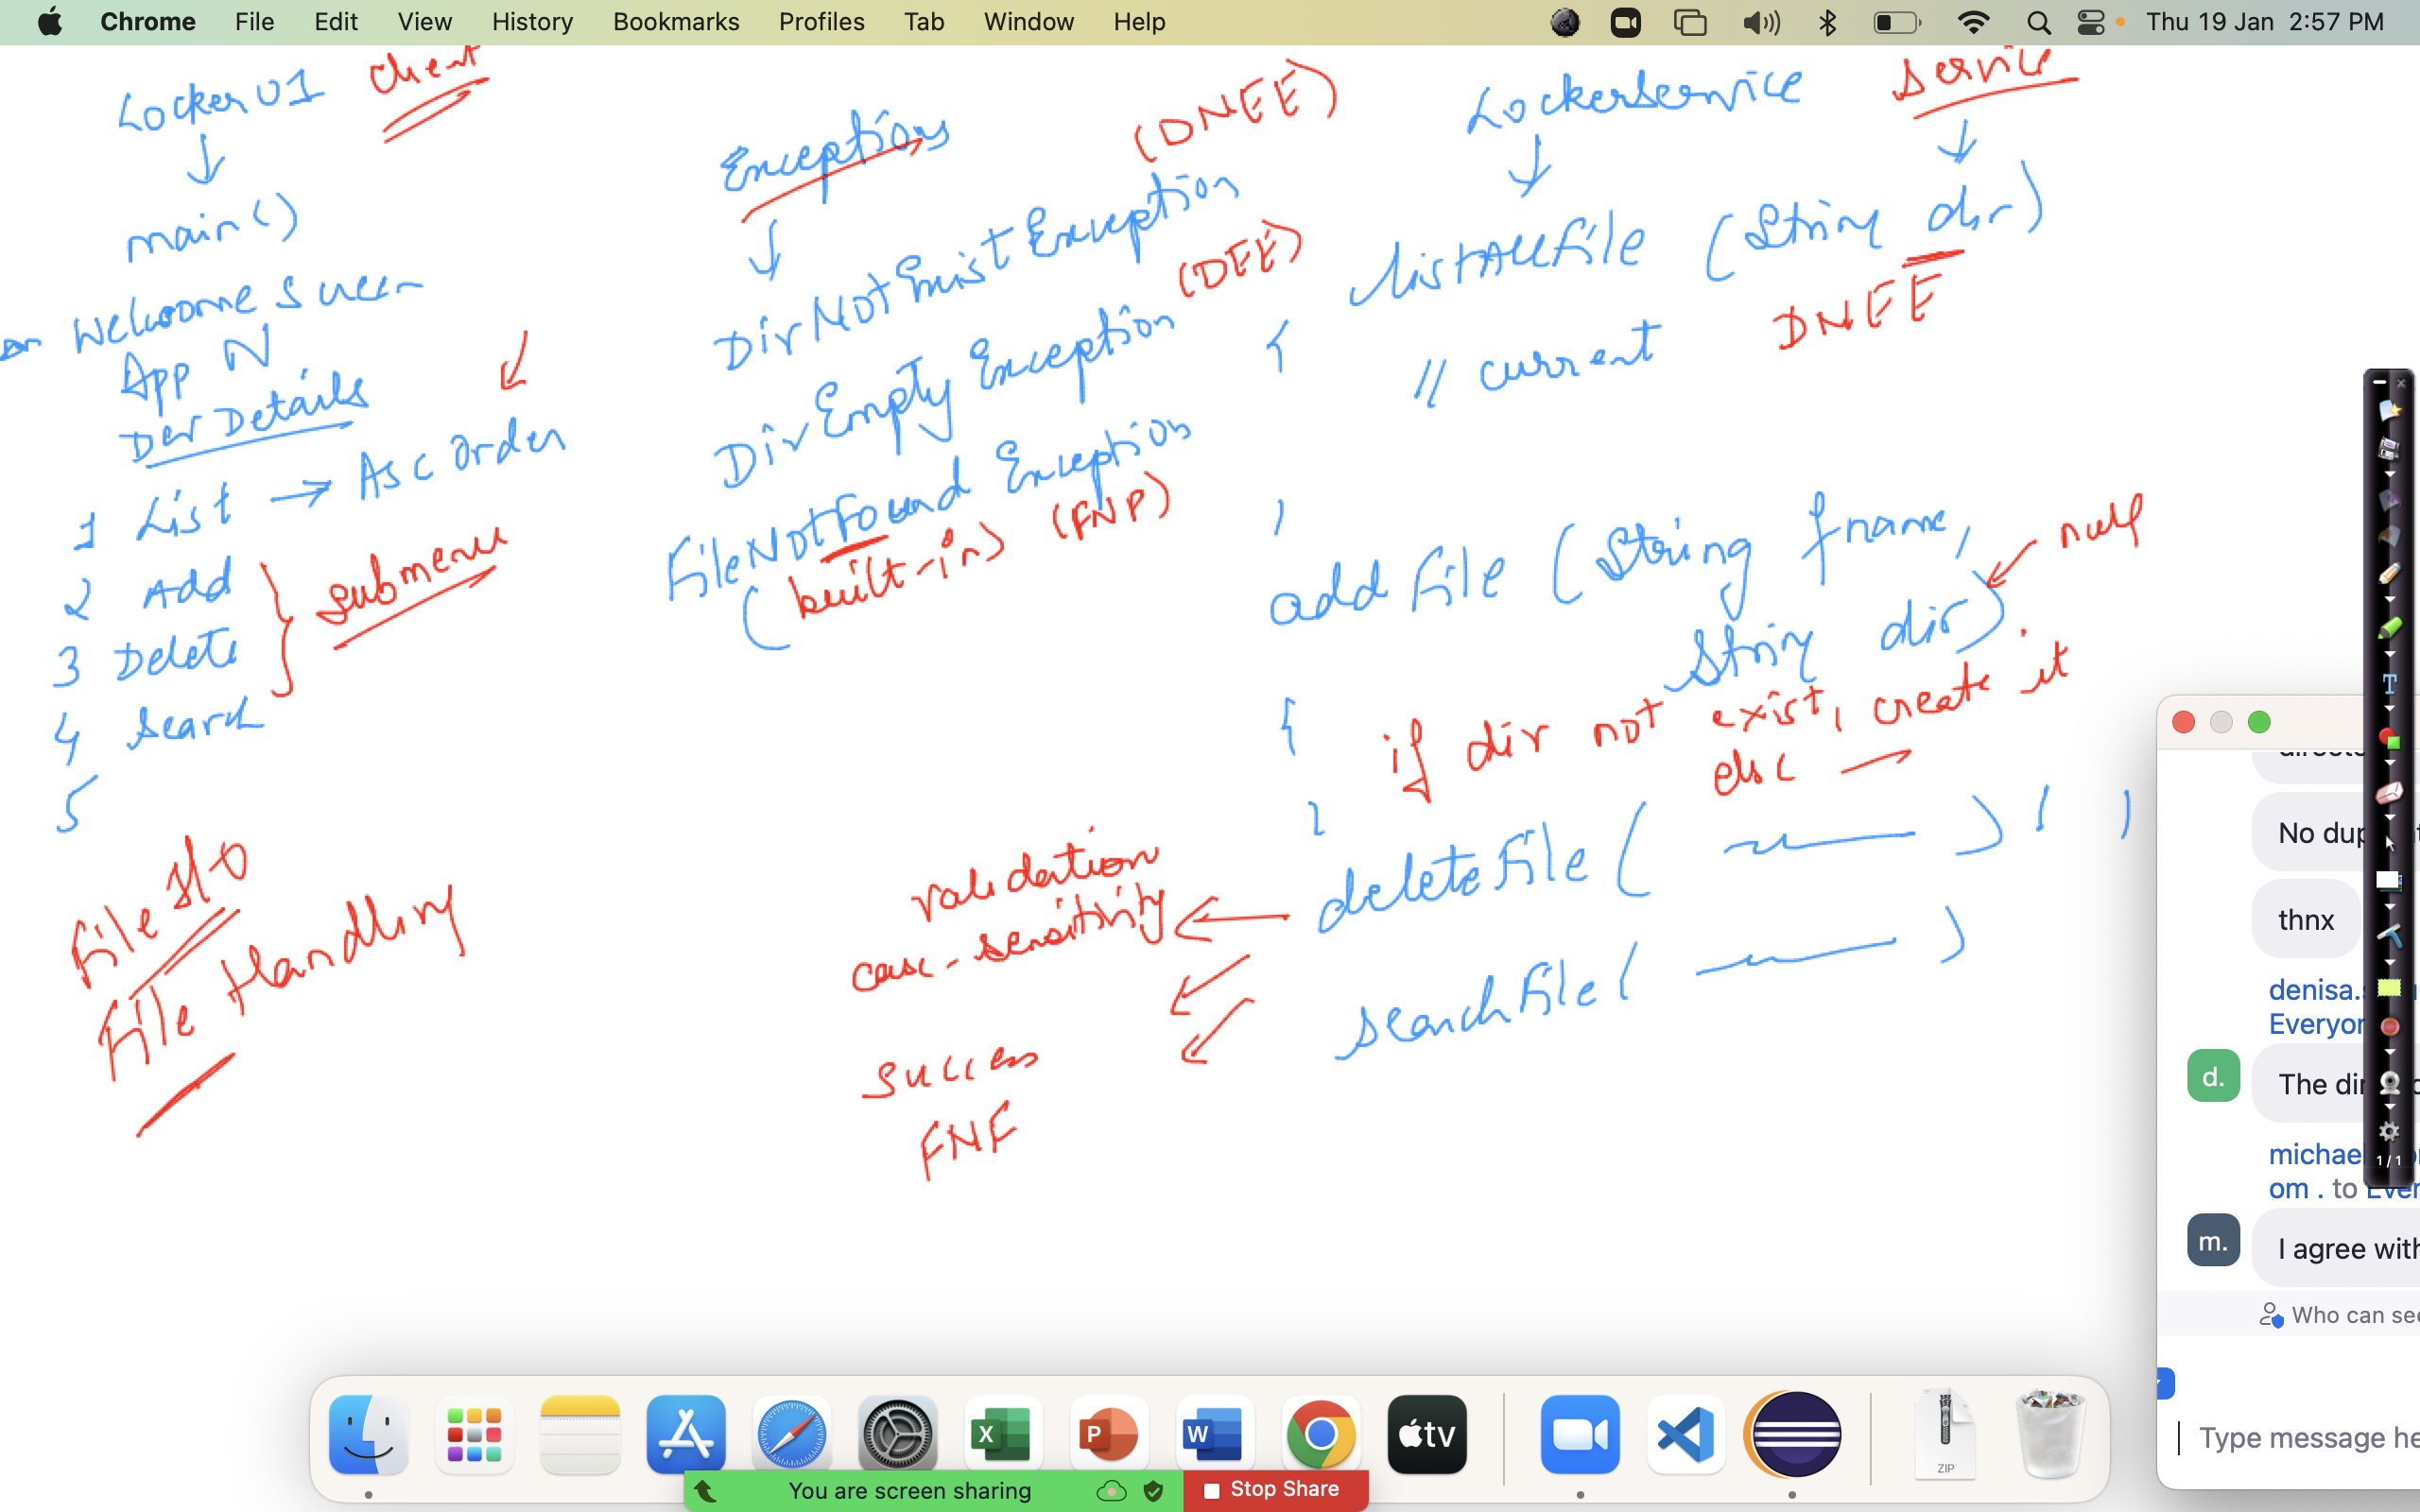 Chrome File Edit View History Bookmarks Profiles Tab Window Help
Thu 19 Jan 2:57 PM
LockerUI client
main()
Welcome Screen
App N
Dev Details
1 List → Asc Order
2 Add
3 Delete
submenu
4 Search
5
File I/O
File Handling
Exceptions
(DNEE)
DirNotExistException
(DEE)
DirEmptyException
FileNotFoundException
(built-in) (FNF)
LockerService service
listAllFile (String dir)
{ DNEE
// current
}
addFile (String fname,
String dir)
null
{ if dir not exist, create it
else
}
deleteFile ( ) { }
searchFile ( )
validation
case-sensitivity
success
FNF
No dup
thnx
denisa.s
Everyon
d.
The dir
michae
om . to Ever
m.
I agree with
Who can see
Type message he
1/1
T
X
P
W
tv
ZIP
You are screen sharing
Stop Share